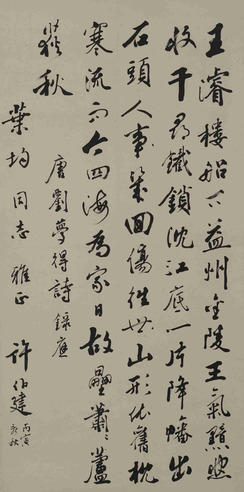 王濬樓船下益州金陵王氣黯然
收千尋鐵鎖沈江底一片降幡出
石頭人事幾回傷往世山形依舊枕
寒流而今四海為家日故壘蕭〻蘆
荻秋
唐劉夢得詩錄應
葉均同志雅正
許伯建
丙寅
秋